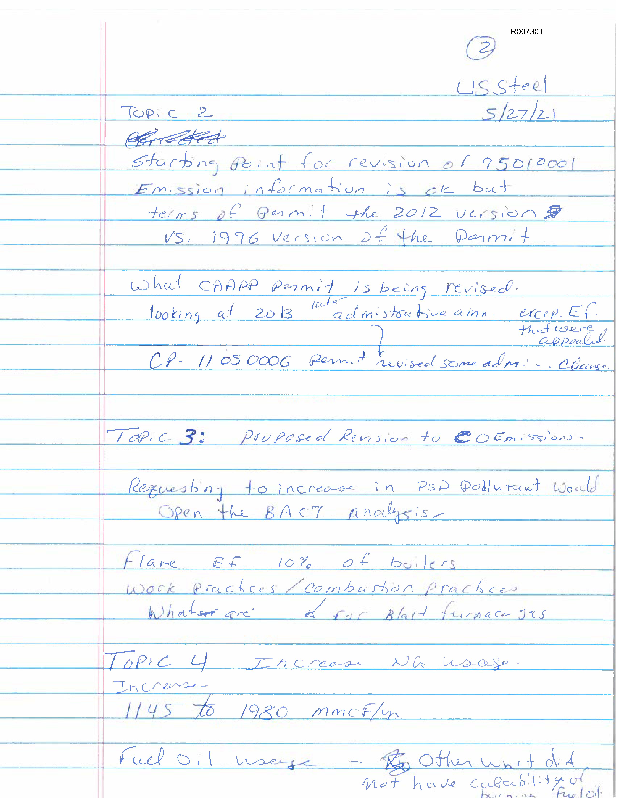 R007301
2
US Steel
Topic 2
5/27/21
Starting Point for revision of 95010001
Emission information is ok but
terms of Permit the 2012 version
vs. 1996 version of the Permit
What CAAPP permit is being revised.
looking at 2013 admistrative amn except EF.
that were
appealed
CP- 11050006 Permit revised some admi... change
Topic 3: Proposed Revision to CO Emissions.
Requesting to increase in PSD Pollutant Would
Open the BACT Analysis
Flare EF 10% of boilers
Work Practices / Combustion Practices
What are for Blast furnace gas
Topic 4 Increase NG usage.
Increase
1145 to 1980 mmcf/yr
Fuel Oil usage - Other unit did
not have cabability of
burning fuel oil